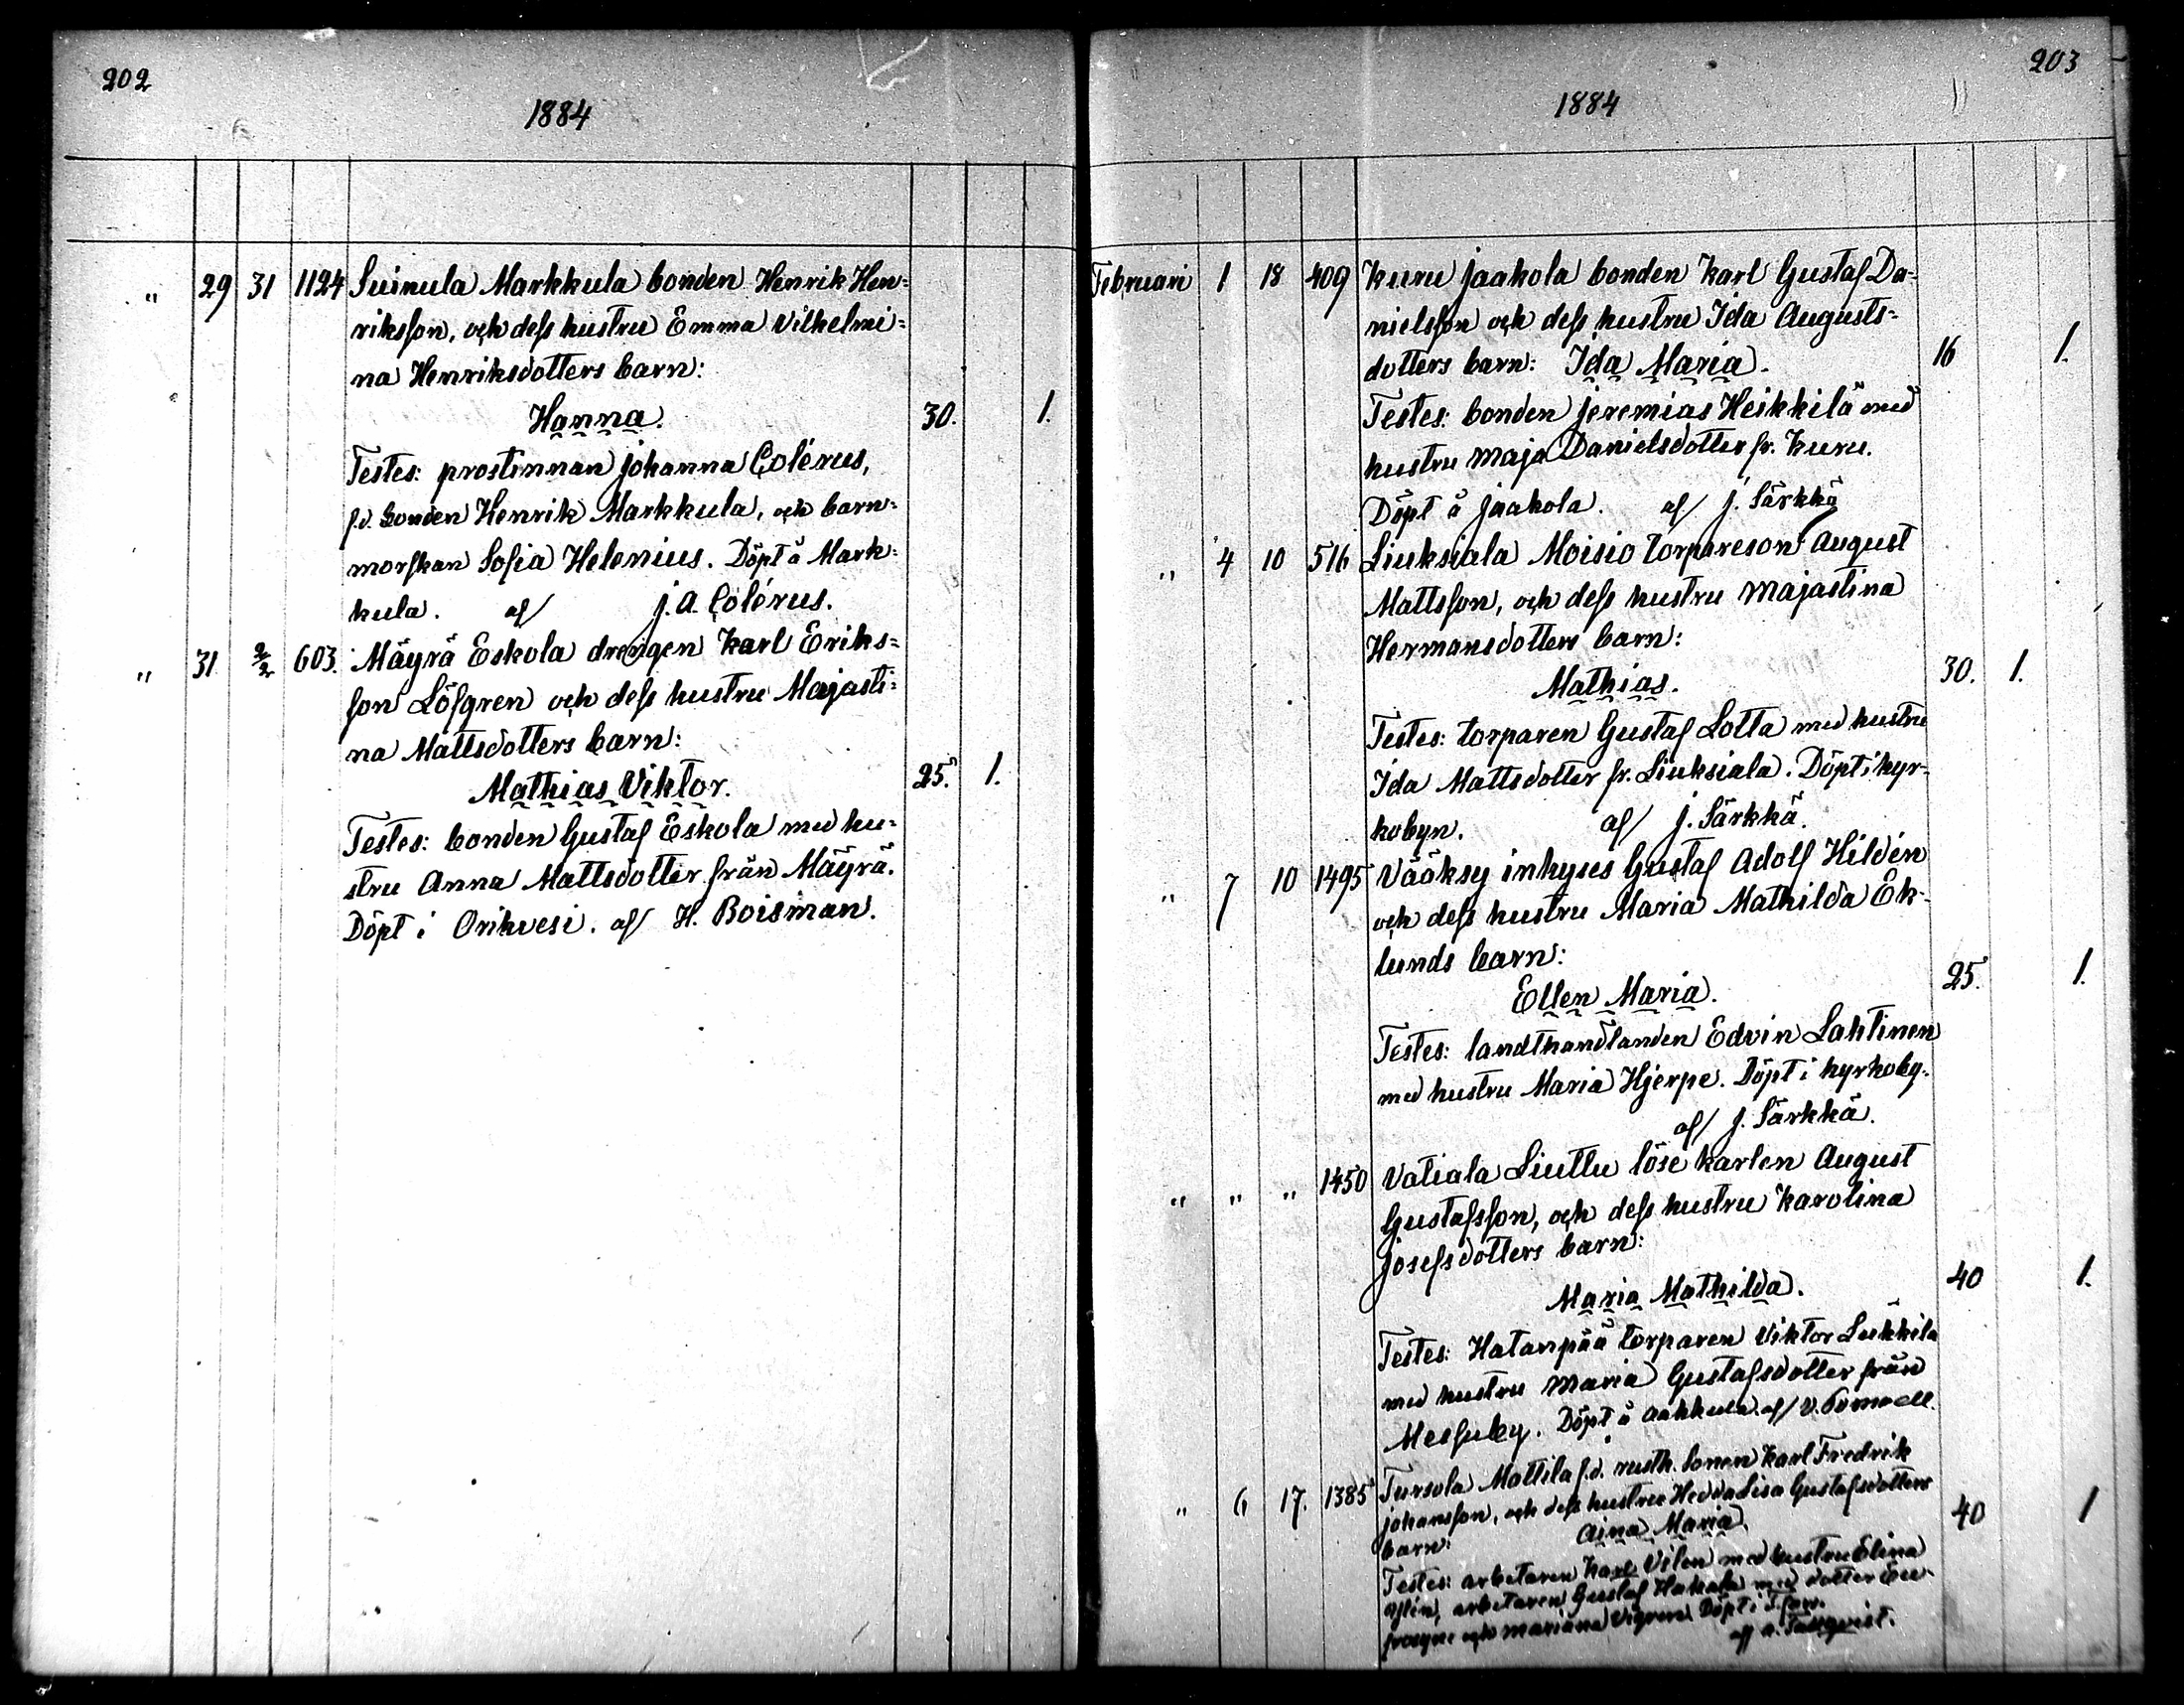 202
1884
" 29 31 1124 Suinula Markkula bonden Henrik Hen=
riksson, och dess hustru Emma Vilhelmi=
na Henriksdotters barn:
Hanna. 30. 1.
Testes: prostinnan Johanna Colérus,
f.d. bonden Henrik Markkula, och barn=
morskan Sofia Helenius. Döpt å Mark=
kula. af J. A. Colérus.
" 31 2/2 603. Mäyrä Eskola drengen Karl Eriks=
son Löfgren och dess hustru Majasti=
na Mattsdotters barn:
Mathias Viktor. 25. 1.
Testes: bonden Gustaf Eskola med hu=
stru Anna Mattsdotter från Mäyrä.
Döpt i Orihvesi. af H. Boisman.
203
1884
Februari 1 18 409 Kuru Jaakola bonden Karl Gustaf Da=
nielsson och dess hustru Ida Augusts=
dotters barn: Ida Maria. 16 1.
Testes: bonden Jeremias Heikkilä med
hustru Maja Danielsdotter fr. Kuru.
Döpt å Jaakola. af J. Särkkä
" 4 10 516 Liuksiala Moisio torpareson August
Mattsson, och dess hustru Majastina
Hermansdotters barn:
Mathias. 30. 1.
Testes: torparen Gustaf Lotta med hustru
Ida Mattsdotter fr. Liuksiala. Döpt i kyr=
kobyn. af J. Särkkä.
" 7 10 1495 Vääksy inhyses Gustaf Adolf Hildén
och dess hustru Maria Mathilda Ek=
lunds barn:
Ellen Maria. 25. 1.
Testes: landthandlanden Edvin Lahtinen
med hustru Maria Hjerpe. Döpt i kyrkoby.
af J. Särkkä.
" " " 1450 Vatiala Liuttu löse karlen August
Gustafsson, och dess hustru Karolina
Josefsdotters barn:
Maria Mathilda. 40 1.
Testes: Hatanpää torparen Viktor Lukkila
med hustru Maria Gustafsdotter från
Messuby. Döpt å af V.
" 6 17. 1385 Tursola Mattila f.d. rusth. sonen Karl Fredrik
Johansson, och dess hustru Hedda Lisa Gustafsdotters
barn: Aina Maria. 40 1
Testes: arbetaren Karl Vilen med hustru Elina
arbetaren Gustaf Hakala med dotter Eu=
frosyne och Mariana Döpt i
af A. Tallqvist.